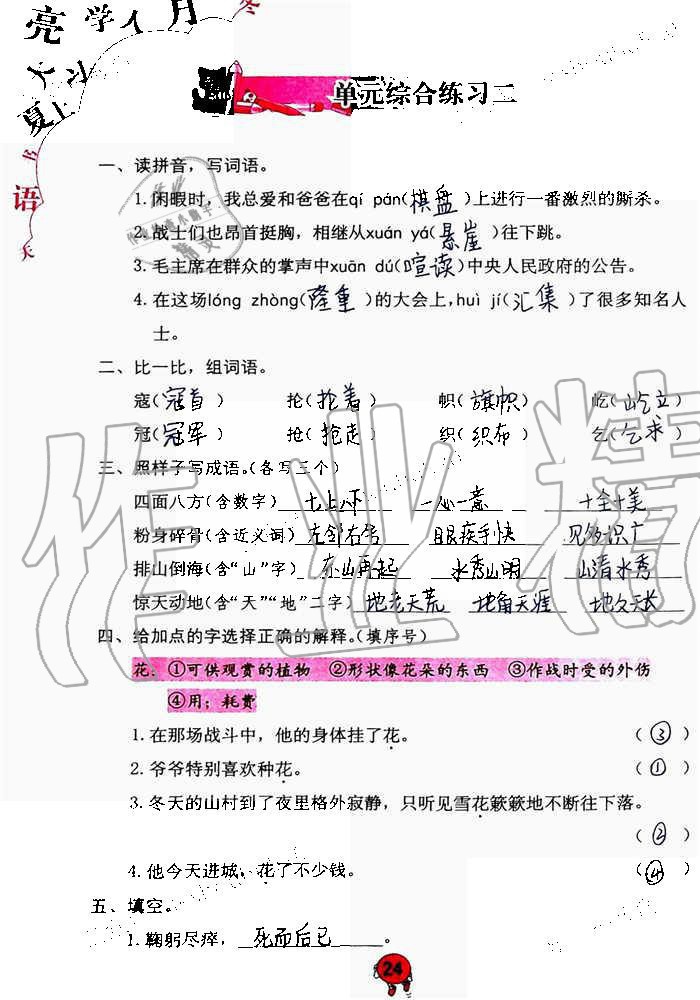 亮学人月冬
大
夏上
书
语
天
单元综合练习二
一、读拼音，写词语。
1.闲暇时，我总爱和爸爸在qí pán(棋盘)上进行一番激烈的厮杀。
2.战士们也昂首挺胸，相继从xuán yá(悬崖)往下跳。
3.毛主席在群众的掌声中xuān dú(喧读)中央人民政府的公告。
4.在这场lóng zhòng(隆重)的大会上，huì jí(汇集)了很多知名人
士。
二、比一比，组词语。
寇(寇首) 抡(抢着) 帜(旗帜) 屹(屹立)
冠(冠军) 抢(抢走) 织(织布) 乞(乞求)
三、照样子写成语。(各写三个)
四面八方(含数字) 七上八下 一心一意 十全十美
粉身碎骨(含近义词) 左邻右舍 眼疾手快 见多识广
排山倒海(含“山”字) 东山再起 水秀山明 山清水秀
惊天动地(含“天”“地”二字) 地老天荒 地角天涯 地久天长
四、给加点的字选择正确的解释。(填序号)
花：①可供观赏的植物 ②形状像花朵的东西 ③作战时受的外伤
④用；耗费
1.在那场战斗中，他的身体挂了花。 (③)
2.爷爷特别喜欢种花。 (①)
3.冬天的山村到了夜里格外寂静，只听见雪花簌簌地不断往下落。
(②)
4.他今天进城，花了不少钱。 (④)
五、填空。
1.鞠躬尽瘁，死而后已。
24
作业精